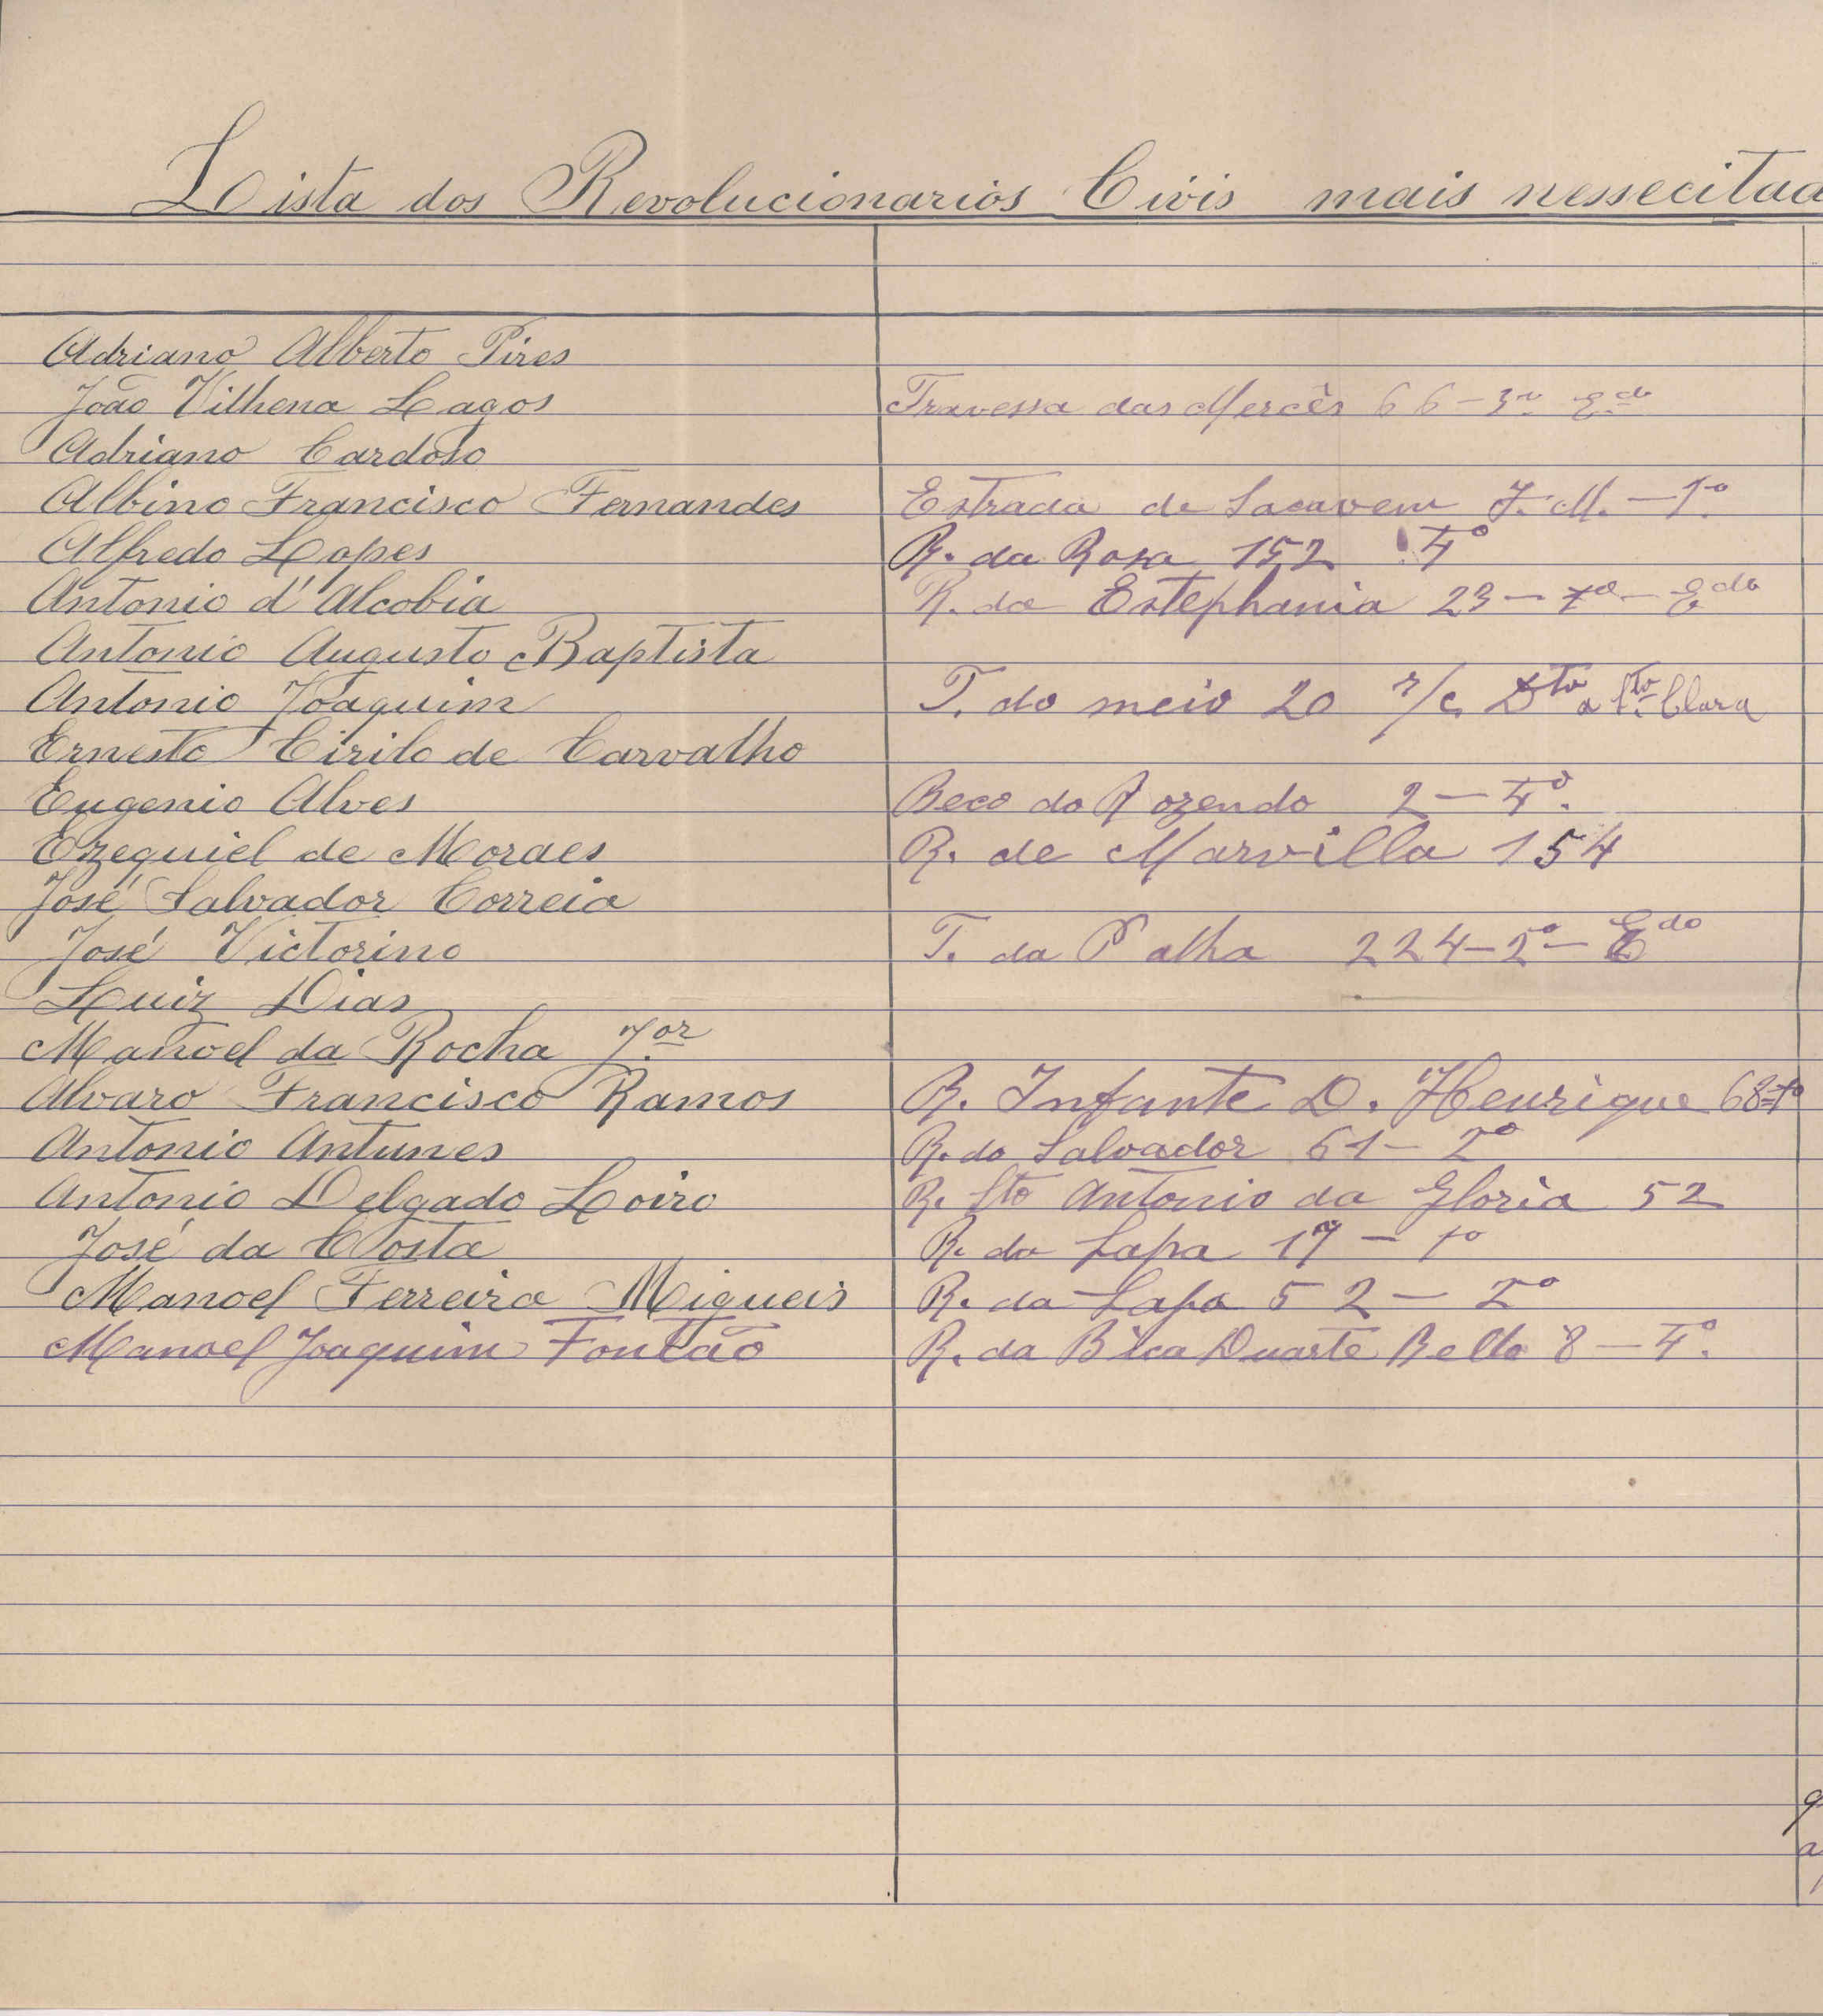 Lista dos Revolucionarios Civis mais nessecitad
Adriano Alberto Pires
João Vilhena Lagos Travessa das Mercês 66-3º E.do
Adriano Cardoso
Albino Francisco Fernandes Estrada de Sacavem J. M. - 1º
Alfredo Lopes R. da Rosa 152 4º
Antonio d'Alcobia R. da Estephania 23 - 1º - E.do
Antonio Augusto Baptista
Antonio Joaquim T. do meio 20 r/c Dto a Sta Clara
Ernesto Cirilo de Carvalho
Eugenio Alves Beco do Rozendo 2 - 4º.
Ezequiel de Moraes R. de Marvilla 154
José Salvador Correia
José Victorino T. da Palha 224-2º- Edo
Luiz Dias
Manoel da Rocha J.or
Alvaro Francisco Ramos R. Infante D. Henrique 68=1º
Antonio Antunes R. do Salvador 61- 2º
Antonio Delgado Loiro R. Sto Antonio da Gloria 52
José da Costa R. da Lapa 17 - 1º
Manoel Ferreira Migueis R. da Lapa 52 - 2º
Manoel Joaquim Fontão R. da Bica Duarte Bello 8 - 4º.